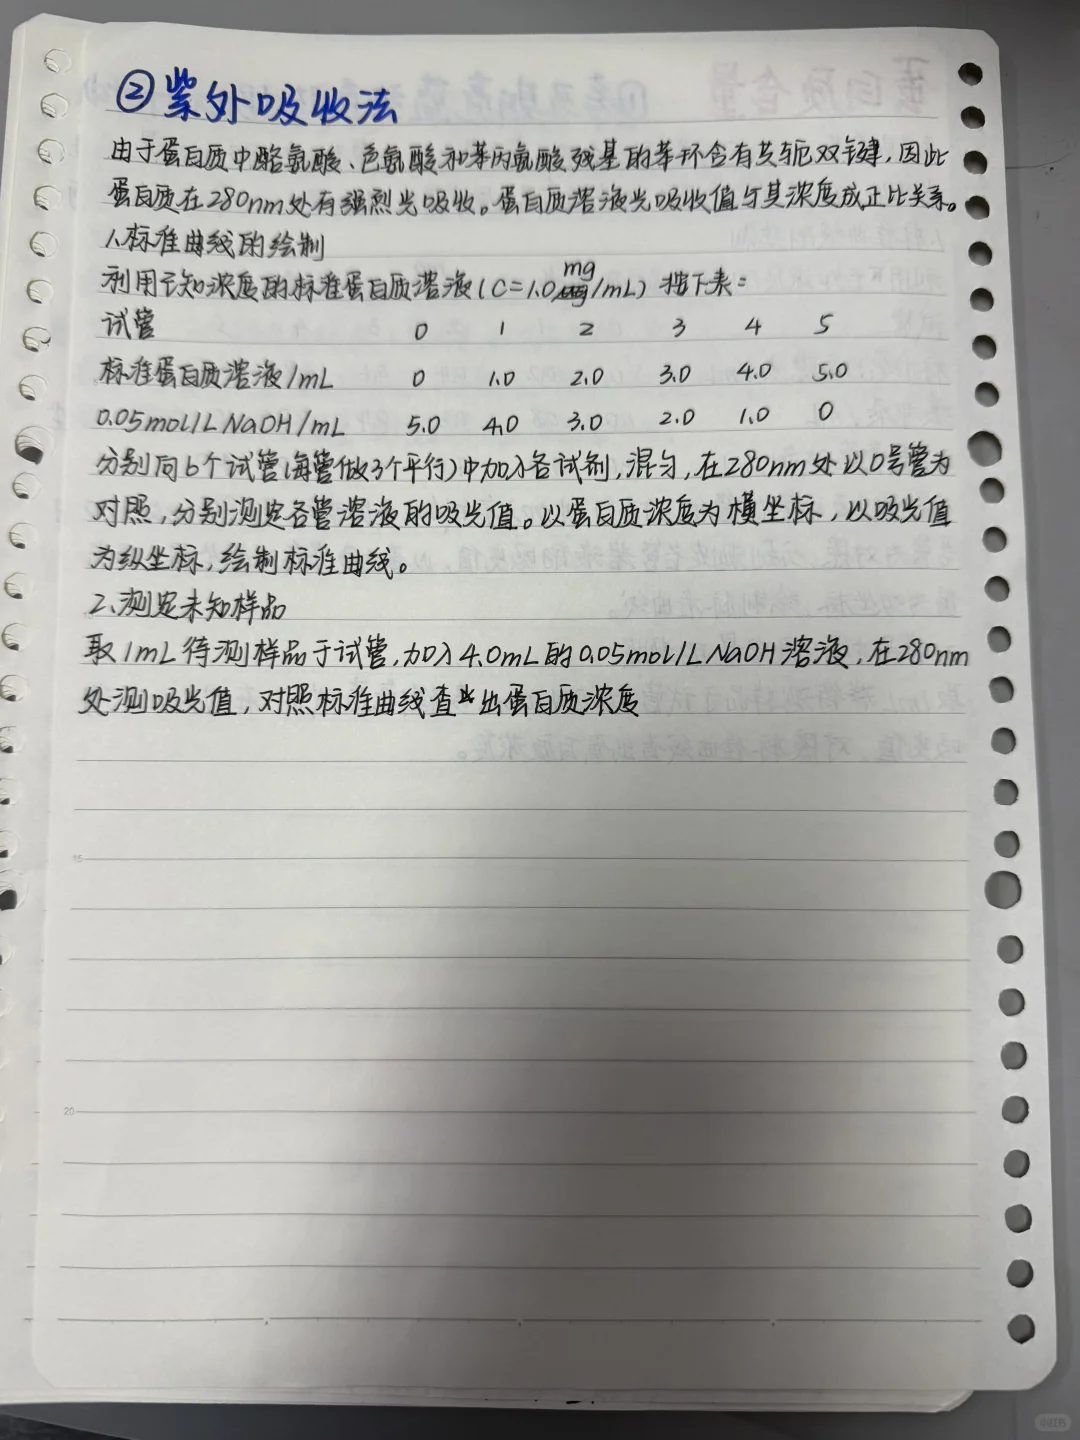 ②紫外吸收法
由于蛋白质中酪氨酸、色氨酸和苯丙氨酸残基的苯环含有共轭双键,因此
蛋白质在280nm处有强烈光吸收。蛋白质溶液光吸收值与其浓度成正比关系。
1.标准曲线的绘制
利用已知浓度的标准蛋白质溶液(C=1.0mg/mL) 按下表:
试管 0 1 2 3 4 5
标准蛋白质溶液/mL 0 1.0 2.0 3.0 4.0 5.0
0.05mol/L NaOH/mL 5.0 4.0 3.0 2.0 1.0 0
分别向6个试管(每管做3个平行)中加入各试剂,混匀,在280nm处以0号管为
对照,分别测定各管溶液的吸光值。以蛋白质浓度为横坐标,以吸光值
为纵坐标,绘制标准曲线。
2.测定未知样品
取1mL待测样品于试管,加入4.0mL的0.05mol/L NaOH溶液,在280nm
处测吸光值,对照标准曲线查出蛋白质浓度
15
20
小红书